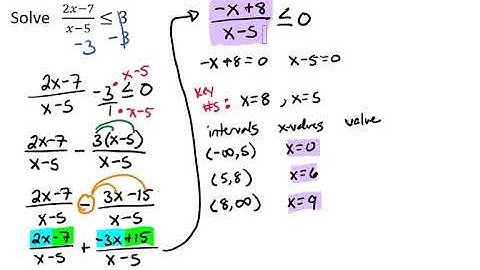 Solve (2x-7)/(x-5) ≤ 3
-3 -3
(2x-7)/(x-5) - 3/1 ≤ 0 • x-5 • x-5
(2x-7)/(x-5) - 3(x-5)/(x-5)
(2x-7)/(x-5) - (3x-15)/(x-5)
(2x-7)/(x-5) + (-3x+15)/(x-5)
(-x+8)/(x-5) ≤ 0
-x+8=0 x-5=0
key #s: x=8, x=5
intervals x-values value
(-∞,5) x=0
(5,8) x=6
(8,∞) x=9